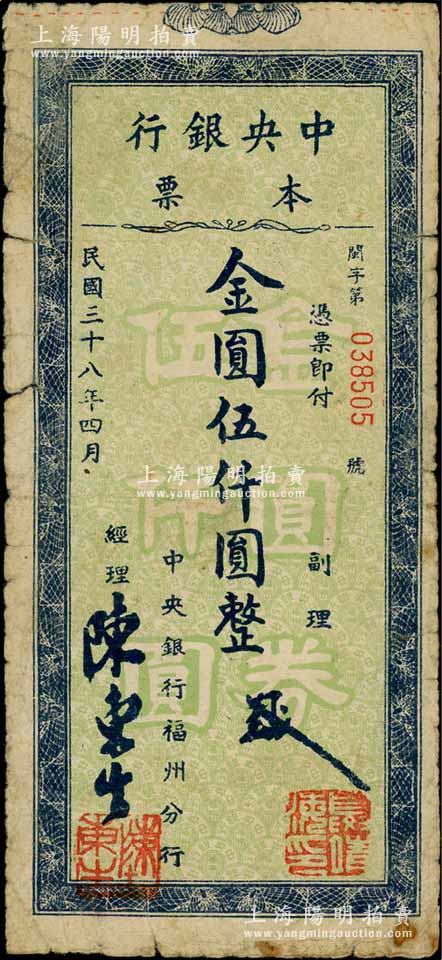 上海陽明拍賣
www.yangmingauction.com
中央銀行
本票
閩字第
038505
號
憑票即付
金圓伍仟圓整
副理
中央銀行福州分行
經理
陳東生
民國三十八年四月.
金圓券
伍仟圓
上海陽明拍賣
www.yangmingauction.com
上海陽明拍賣
www.yangmingauction.com